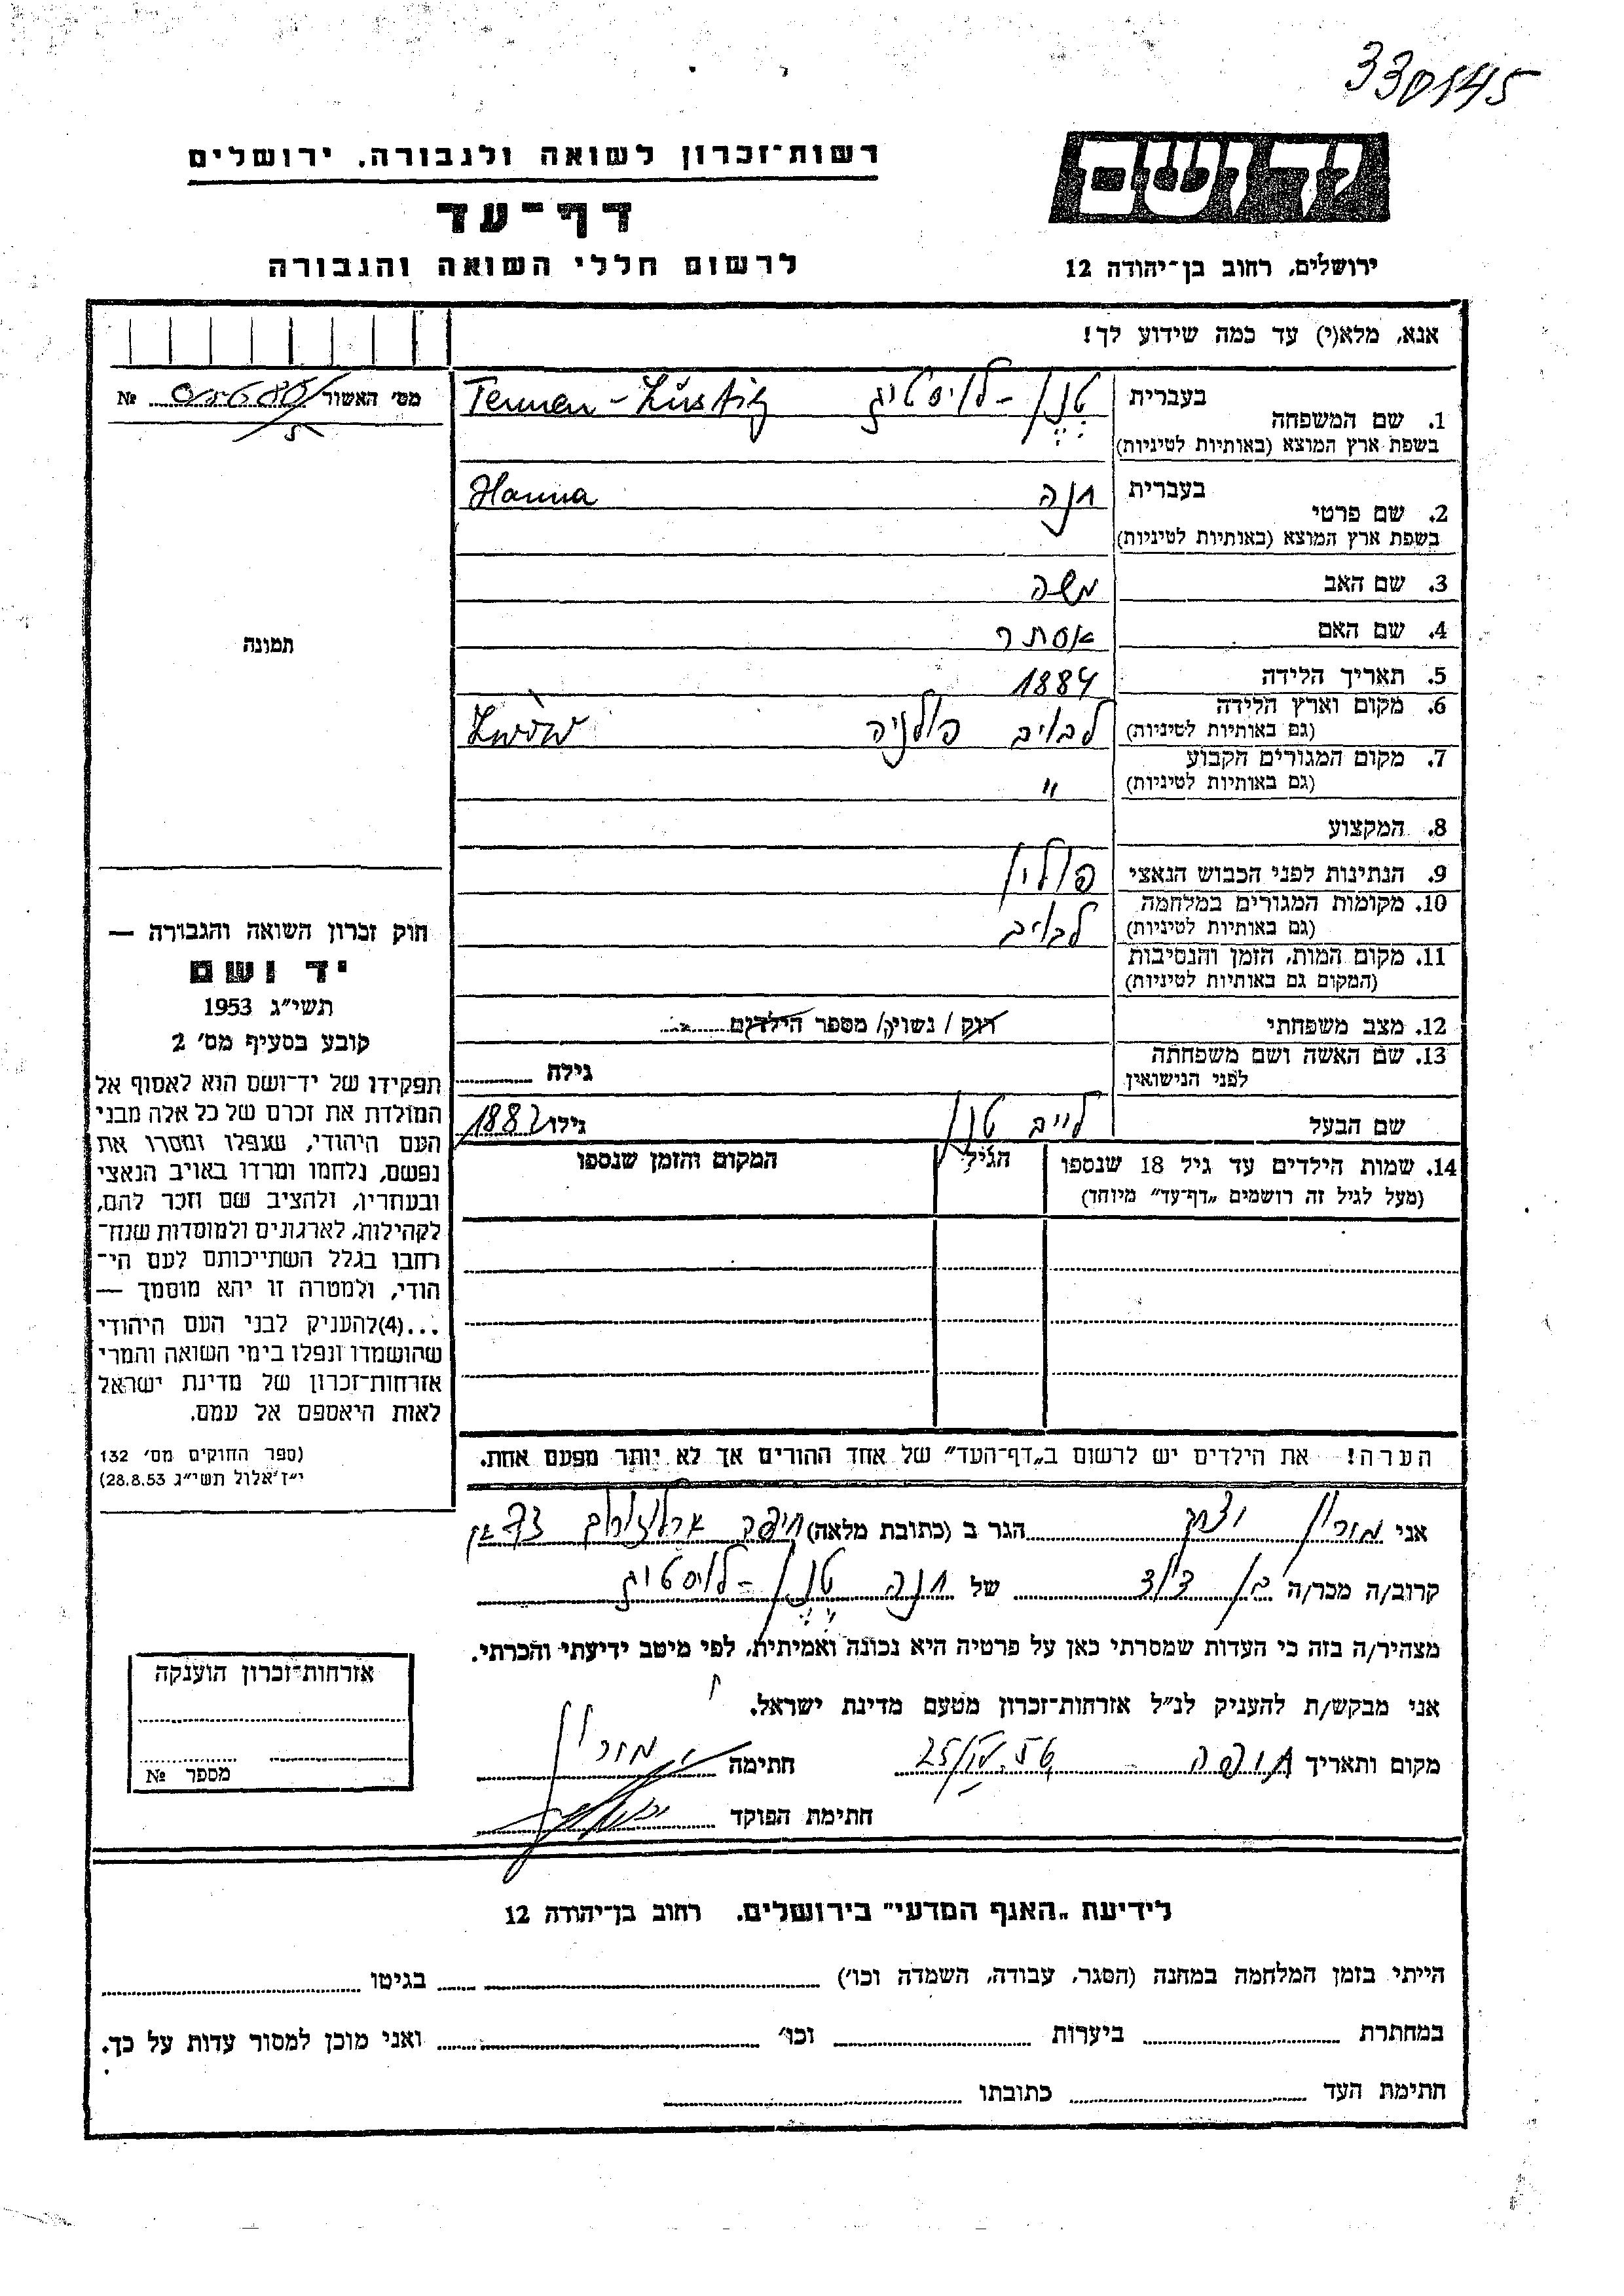 330145
רשות-זכרון לשואה ולגבורה, ירושלים
יד ושם
דף-עד
לרשום חללי השואה והגבורה
ירושלים, רחוב בן-יהודה 12
אנא, מלא(י) עד כמה שידוע לך!
מס׳ האשור № 
1. שם המשפחה בעברית טנן-לוסטיג Tennen-Lustig
בשפת ארץ המוצא (באותיות לטיניות)
2. שם פרטי בעברית חנה Hanna
בשפת ארץ המוצא (באותיות לטיניות)
3. שם האב משה
4. שם האם אסתר
תמונה
5. תאריך הלידה 1884
6. מקום וארץ הלידה לבוב פולניה Lwów
(גם באותיות לטיניות)
7. מקום המגורים הקבוע "
(גם באותיות לטיניות)
8. המקצוע
9. הנתינות לפני הכבוש הנאצי פולין
10. מקומות המגורים במלחמה לבוב
(גם באותיות לטיניות)
11. מקום המות, הזמן והנסיבות
(המקום גם באותיות לטיניות)
12. מצב משפחתי רוק / נשוי/ה / מספר הילדים
13. שם האשה ושם משפחתה
לפני הנישואין גילה
שם הבעל לייב טנן גילו 1882
14. שמות הילדים עד גיל 18 שנספו הגיל המקום והזמן שנספו
(מעל לגיל זה רושמים „דף-עד" מיוחד)
חוק זכרון השואה והגבורה —
יד ושם
תשי״ג 1953
קובע בסעיף מס׳ 2
תפקידו של יד-ושם הוא לאסוף אל
המולדת את זכרם של כל אלה מבני
העם היהודי, שנפלו ומסרו את
נפשם, נלחמו ומרדו באויב הנאצי
ובעוזריו, ולהציב שם וזכר להם,
לקהילות, לארגונים ולמוסדות שנח-
רבו בגלל השתייכותם לעם הי-
הודי, ולמטרה זו יהא מוסמך —
...(4) להעניק לבני העם היהודי
שהושמדו ונפלו בימי השואה והמרי
אזרחות-זכרון של מדינת ישראל
לאות היאספם אל עמם.
(ספר החוקים מס׳ 132
י״ז אלול תשי״ג 28.8.53)
הערה! את הילדים יש לרשום ב„דף-העד" של אחד ההורים אך לא יותר מפעם אחת.
אני מורן יצחק הגר ב (כתובת מלאה) חיפה ארלוזורוב
קרוב/ה מכר/ה בן דוד של חנה טנן-לוסטיג
מצהיר/ה בזה כי העדות שמסרתי כאן על פרטיה היא נכונה ואמיתית, לפי מיטב ידיעתי והכרתי.
אני מבקש/ת להעניק לנ״ל אזרחות-זכרון מטעם מדינת ישראל.
מקום ותאריך חיפה 25/ 56 חתימה מורן
חתימת הפוקד
אזרחות-זכרון הוענקה
מספר №
לידיעת „האגף המדעי" בירושלים, רחוב בן-יהודה 12
הייתי בזמן המלחמה במחנה (הסגר, עבודה, השמדה וכו׳) בגיטו
במחתרת ביערות וכו׳ ואני מוכן למסור עדות על כך.
חתימת העד כתובתו